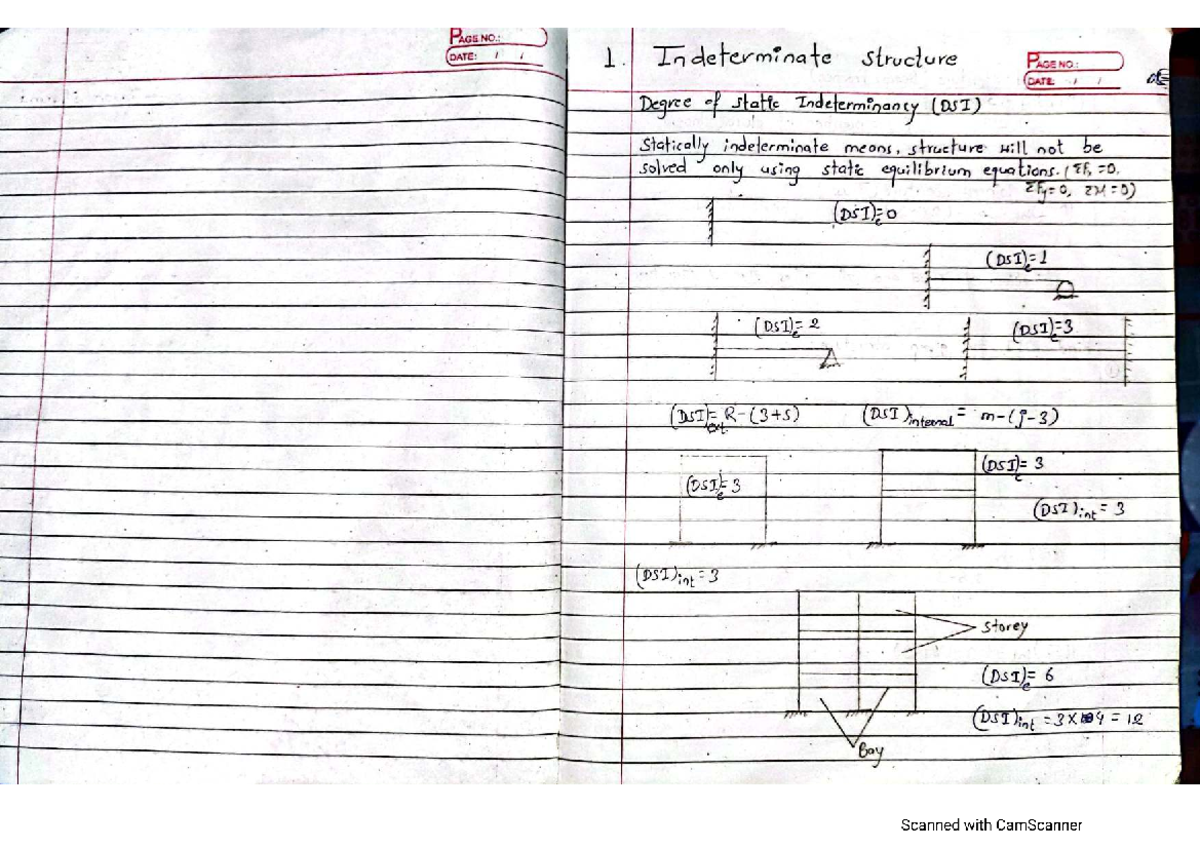 PAGE NO.:
DATE: / /
1. Indeterminate structure
PAGE NO.:
DATE: / /
Degree of static Indeterminancy (DSI)
Statically indeterminate means, structure will not be
solved only using static equilibrium equations. (ΣFx =0,
ΣFy=0, ΣM=0)
(DSI)e=0
(DSI)e=1
(DSI)e= 2
(DSI)e=3
(DSI)ext.= R-(3+S)
(DSI)internal = m-(j-3)
(DSI)e= 3
(DSI)e= 3
(DSI)int = 3
(DSI)int = 3
Storey
(DSI)e= 6
(DSI)int = 3×4 = 12
Bay
Scanned with CamScanner